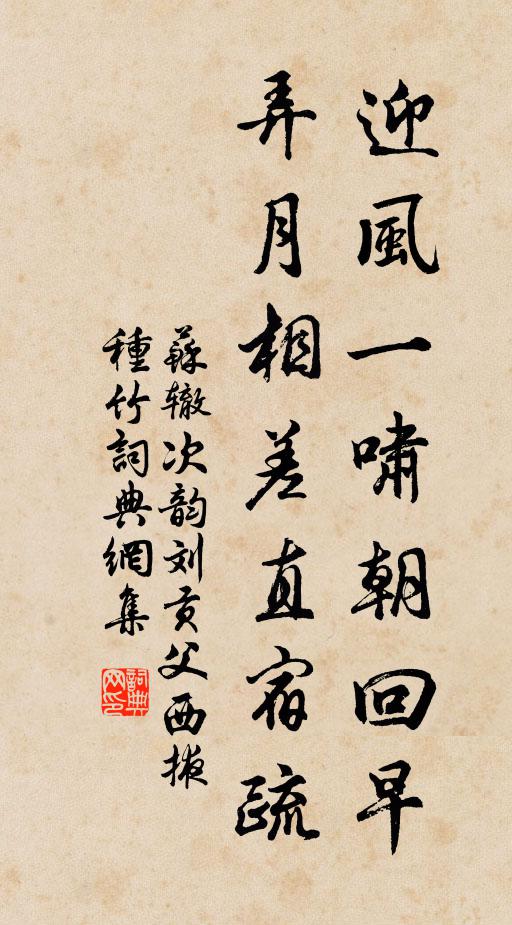 迎風一嘯朝回早
弄月相差直宿疏
蘇辙次韵刘贡父西掖
種竹詞典網集
詞典网印